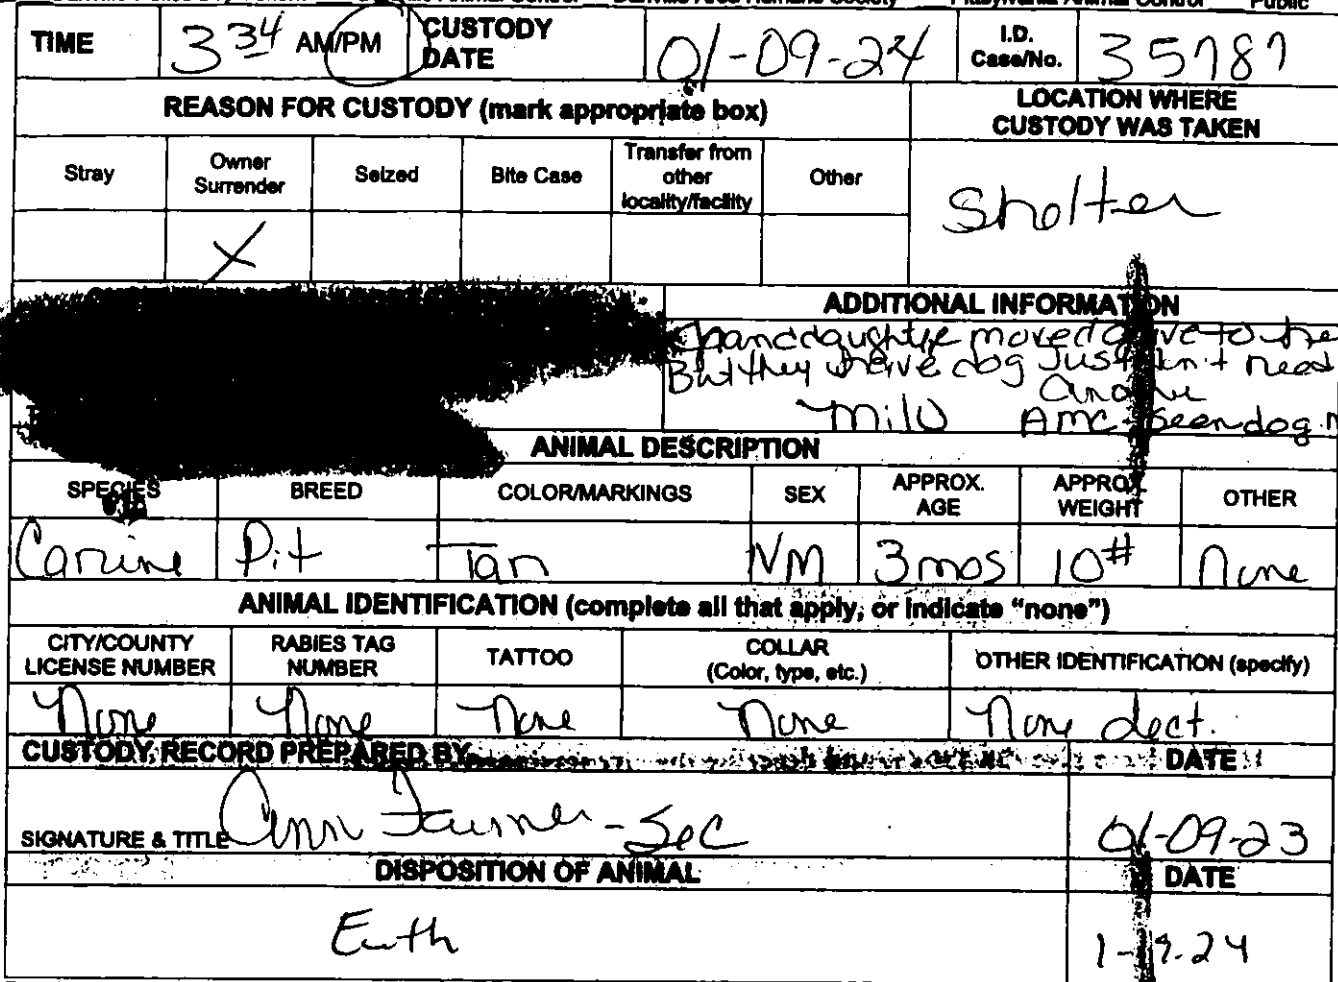 Danville Area Humane Society Pittsylvania Animal Control Public
TIME 3 34 AM/PM CUSTODY DATE 01-09-24 I.D. Case/No. 35787
REASON FOR CUSTODY (mark appropriate box) LOCATION WHERE CUSTODY WAS TAKEN
Stray Owner Surrender Seized Bite Case Transfer from other locality/facility Other Shelter
X
ADDITIONAL INFORMATION
Granddaughter moved to
But they have dog Just need
Milo AMC seen dog
ANIMAL DESCRIPTION
SPECIES BREED COLOR/MARKINGS SEX APPROX. AGE APPROX. WEIGHT OTHER
Canine Pit Tan NM 3 mos 10# None
ANIMAL IDENTIFICATION (complete all that apply, or indicate "none")
CITY/COUNTY LICENSE NUMBER RABIES TAG NUMBER TATTOO COLLAR (Color, type, etc.) OTHER IDENTIFICATION (specify)
None None None None None dect.
CUSTODY RECORD PREPARED BY DATE
SIGNATURE & TITLE Ann - Sec 01-09-23
DISPOSITION OF ANIMAL DATE
Euth